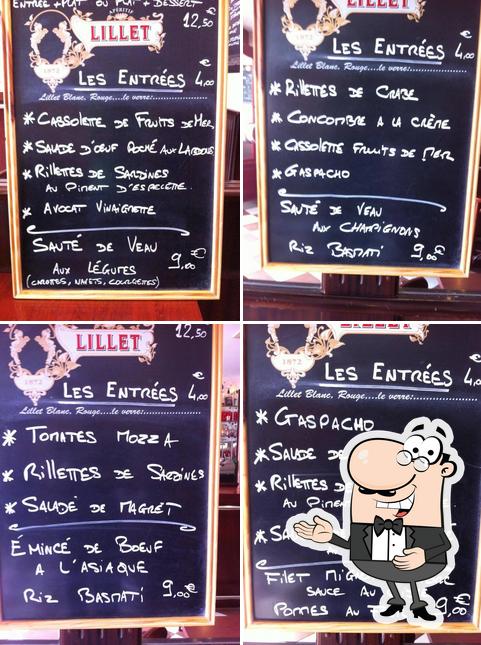 ENTRÉE + PLAT OU PLAT + DESSERT
12,50 €
APÉRITIF
LILLET
1872
LES ENTRÉES 4,00 €
Lillet Blanc, Rouge....le verre:
* CASSOLETTE DE FRUITS DE MER
* SALADE D'OEUF POCHÉ AUX LARDONS
* RILLETTES DE SARDINES
AU PIMENT D'ESPELETTE
* AVOCAT VINAIGRETTE
SAUTÉ DE VEAU
AUX LÉGUMES 9,00 €
(CAROTTES, NAVETS, COURGETTES)
LILLET
1872
LES ENTRÉES 4,00 €
Lillet Blanc, Rouge....le verre:
* RILLETTES DE CRABE
* CONCOMBRE A LA CRÈME
* CASSOLETTE FRUITS DE MER
* GASPACHO
SAUTÉ DE VEAU
AUX CHAMPIGNONS
RIZ BASMATI 9,00 €
12,50
LILLET
1872
LES ENTRÉES 4,00 €
Lillet Blanc, Rouge....le verre:
* TOMATES MOZZA
* RILLETTES DE SARDINES
* SALADE DE MAGRET
ÉMINCÉ DE BOEUF
A L'ASIAQUE
RIZ BASMATI 9,00 €
LILLET
1872
LES ENTRÉES 4,00
Lillet Blanc, Rouge....le verre:
* GASPACHO
* SALADE DE
* RILLETTES D
AU PIMEN
* SA
FILET MIG
SAUCE AU
POMMES AU 9,00 €